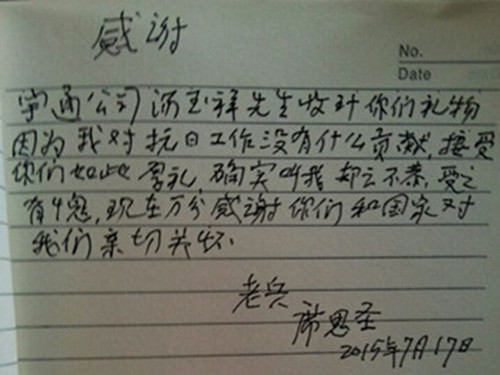 感谢
No.
Date
宇通公司汤玉祥先生收到你们礼物
因为我对抗日工作没有什么贡献，接受
你们如此厚礼，确实叫我却之不恭，受之
有愧，现在万分感谢你们和国家对
我们亲切关怀.
老兵
席思圣
2015年7月17日